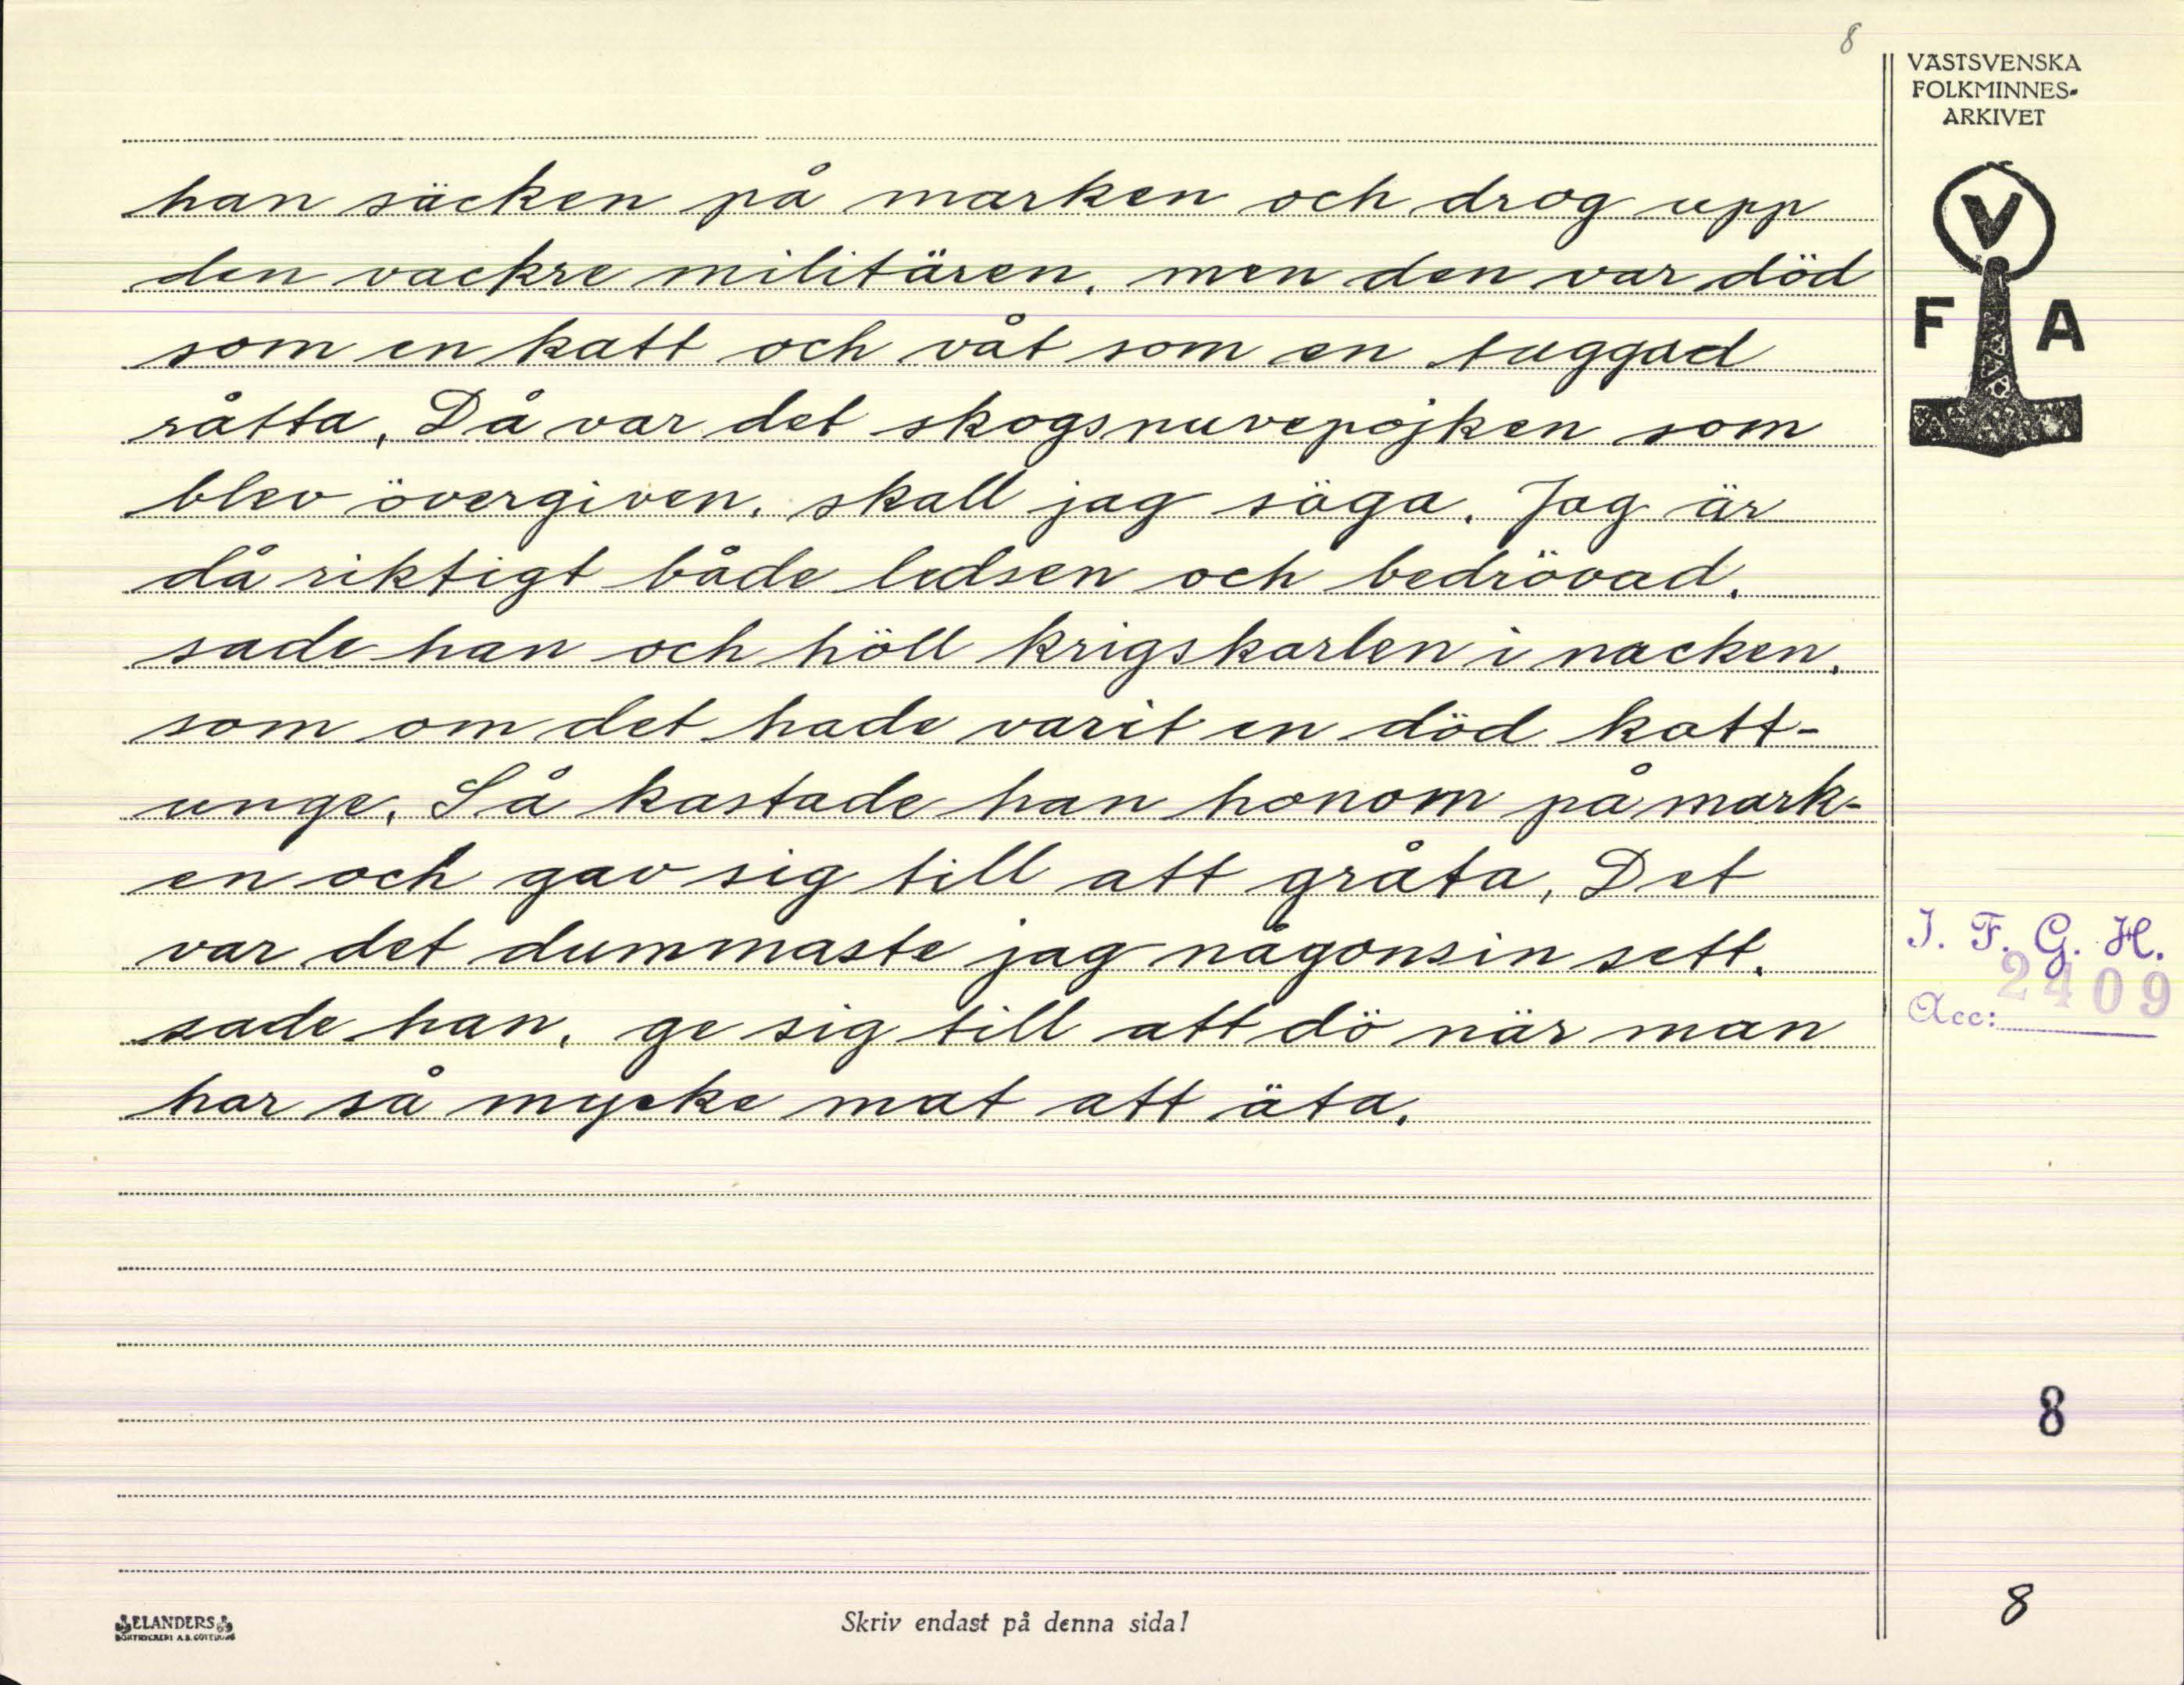 8
VÄSTSVENSKA
FOLKMINNES-
ARKIVET
V
F A
han säcken på marken och drog upp
den vackre militären, men den var död
som en katt och våt som en tuggad
råtta. Då var det skogsnuvepojken som
blev övergiven, skall jag säga. Jag är
då riktigt både ledsen och bedrövad,
sade han och höll krigskarlen i nacken,
som om det hade varit en död katt-
unge. Så kastade han honom på mark-
en och gav sig till att gråta. Det
var det dummaste jag någonsin sett,
sade han, ge sig till att dö när man
har så mycke mat att äta.
I. F. G. H.
Acc: 2409
8
8
ELANDERS
BOKTRYCKERI A.B. GÖTEBORG
Skriv endast på denna sida!